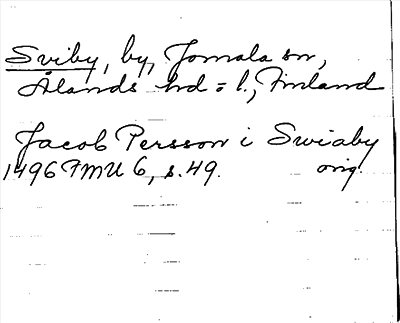 Sviby, by, Jomala sn,
Ålands hd = l., Finland
Jacob Persson i Swiaby
1496 FMU 6, s. 49. orig.